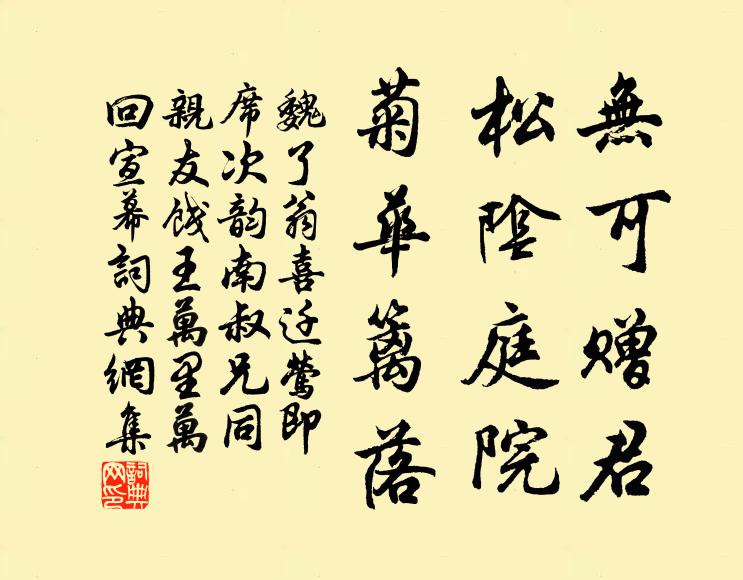 無可贈君
松陰庭院
菊華籬落
魏了翁喜迁鶯即
席次韵南叔兄同
親友餞王萬里萬
回宣幕詞典網集
詞典
网印